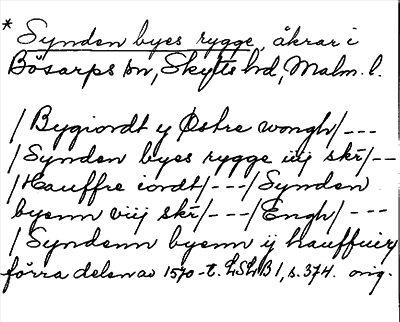 * Synden byes rygge, åkrar i
Bösarps sn, Skytts hd, Malm. l.
/ Bygiordt y Østre wongh/ ---
/ Synden byes rygge iiij skr/ --
/ Hauffre iordt/ --- / Synden
byenn viij skr/ --- / Engh/ ---
/ Syndenn byenn ij hauffuer
förra delen av 1570-t. LSLB 1, s. 374. orig.